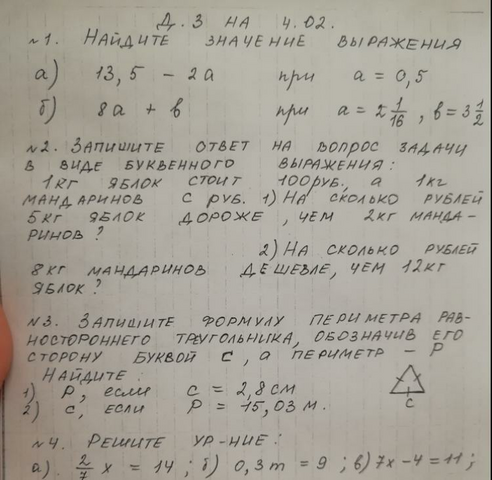 Д.З НА 4.02.
№1. НАЙДИТЕ ЗНАЧЕНИЕ ВЫРАЖЕНИЯ
а) 13,5 - 2а при а = 0,5
б) 8а + в при а = 2 1/16, в = 3 1/2
№2. ЗАПИШИТЕ ОТВЕТ НА ВОПРОС ЗАДАЧИ
В ВИДЕ БУКВЕННОГО ВЫРАЖЕНИЯ:
1кг ЯБЛОК СТОИТ 100РУБ, а 1кг
МАНДАРИНОВ С РУБ. 1) НА СКОЛЬКО РУБЛЕЙ
5кг ЯБЛОК ДОРОЖЕ, ЧЕМ 2кг МАНДА-
РИНОВ?
2) НА СКОЛЬКО РУБЛЕЙ
8кг МАНДАРИНОВ ДЕШЕВЛЕ, ЧЕМ 12кг
ЯБЛОК?
№3. ЗАПИШИТЕ ФОРМУЛУ ПЕРИМЕТРА РАВ-
НОСТОРОННЕГО ТРЕУГОЛЬНИКА, ОБОЗНАЧИВ ЕГО
СТОРОНУ БУКВОЙ С, а ПЕРИМЕТР - Р
НАЙДИТЕ:
1) Р, если с = 2,8 см
2) с, если Р = 15,03 м.
с
№4. РЕШИТЕ УР-НИЕ:
а) 2/7 х = 14; б) 0,3m = 9; в) 7х - 4 = 11;